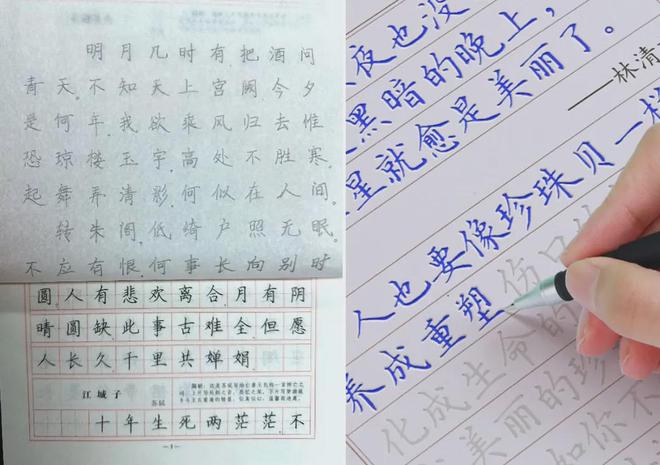 明月几时有.把酒问
青天.不知天上宫阙今夕
是何年.我欲乘风归去惟
恐琼楼玉宇.高处不胜寒.
起舞弄清影.何似在人间.
转朱阁.低绮户.照无眠.
不应有恨.何事长向别时
圆.人有悲欢离合.月有阴
晴圆缺.此事古难全.但愿
人长久.千里共婵娟.
江城子
苏轼
十年生死两茫茫.不
夜也没
黑暗的晚上，
星就愈是美丽了。
——林清
人也要像珍珠贝一样
养成重塑伤口
化成生命的
美丽的珍
如你不